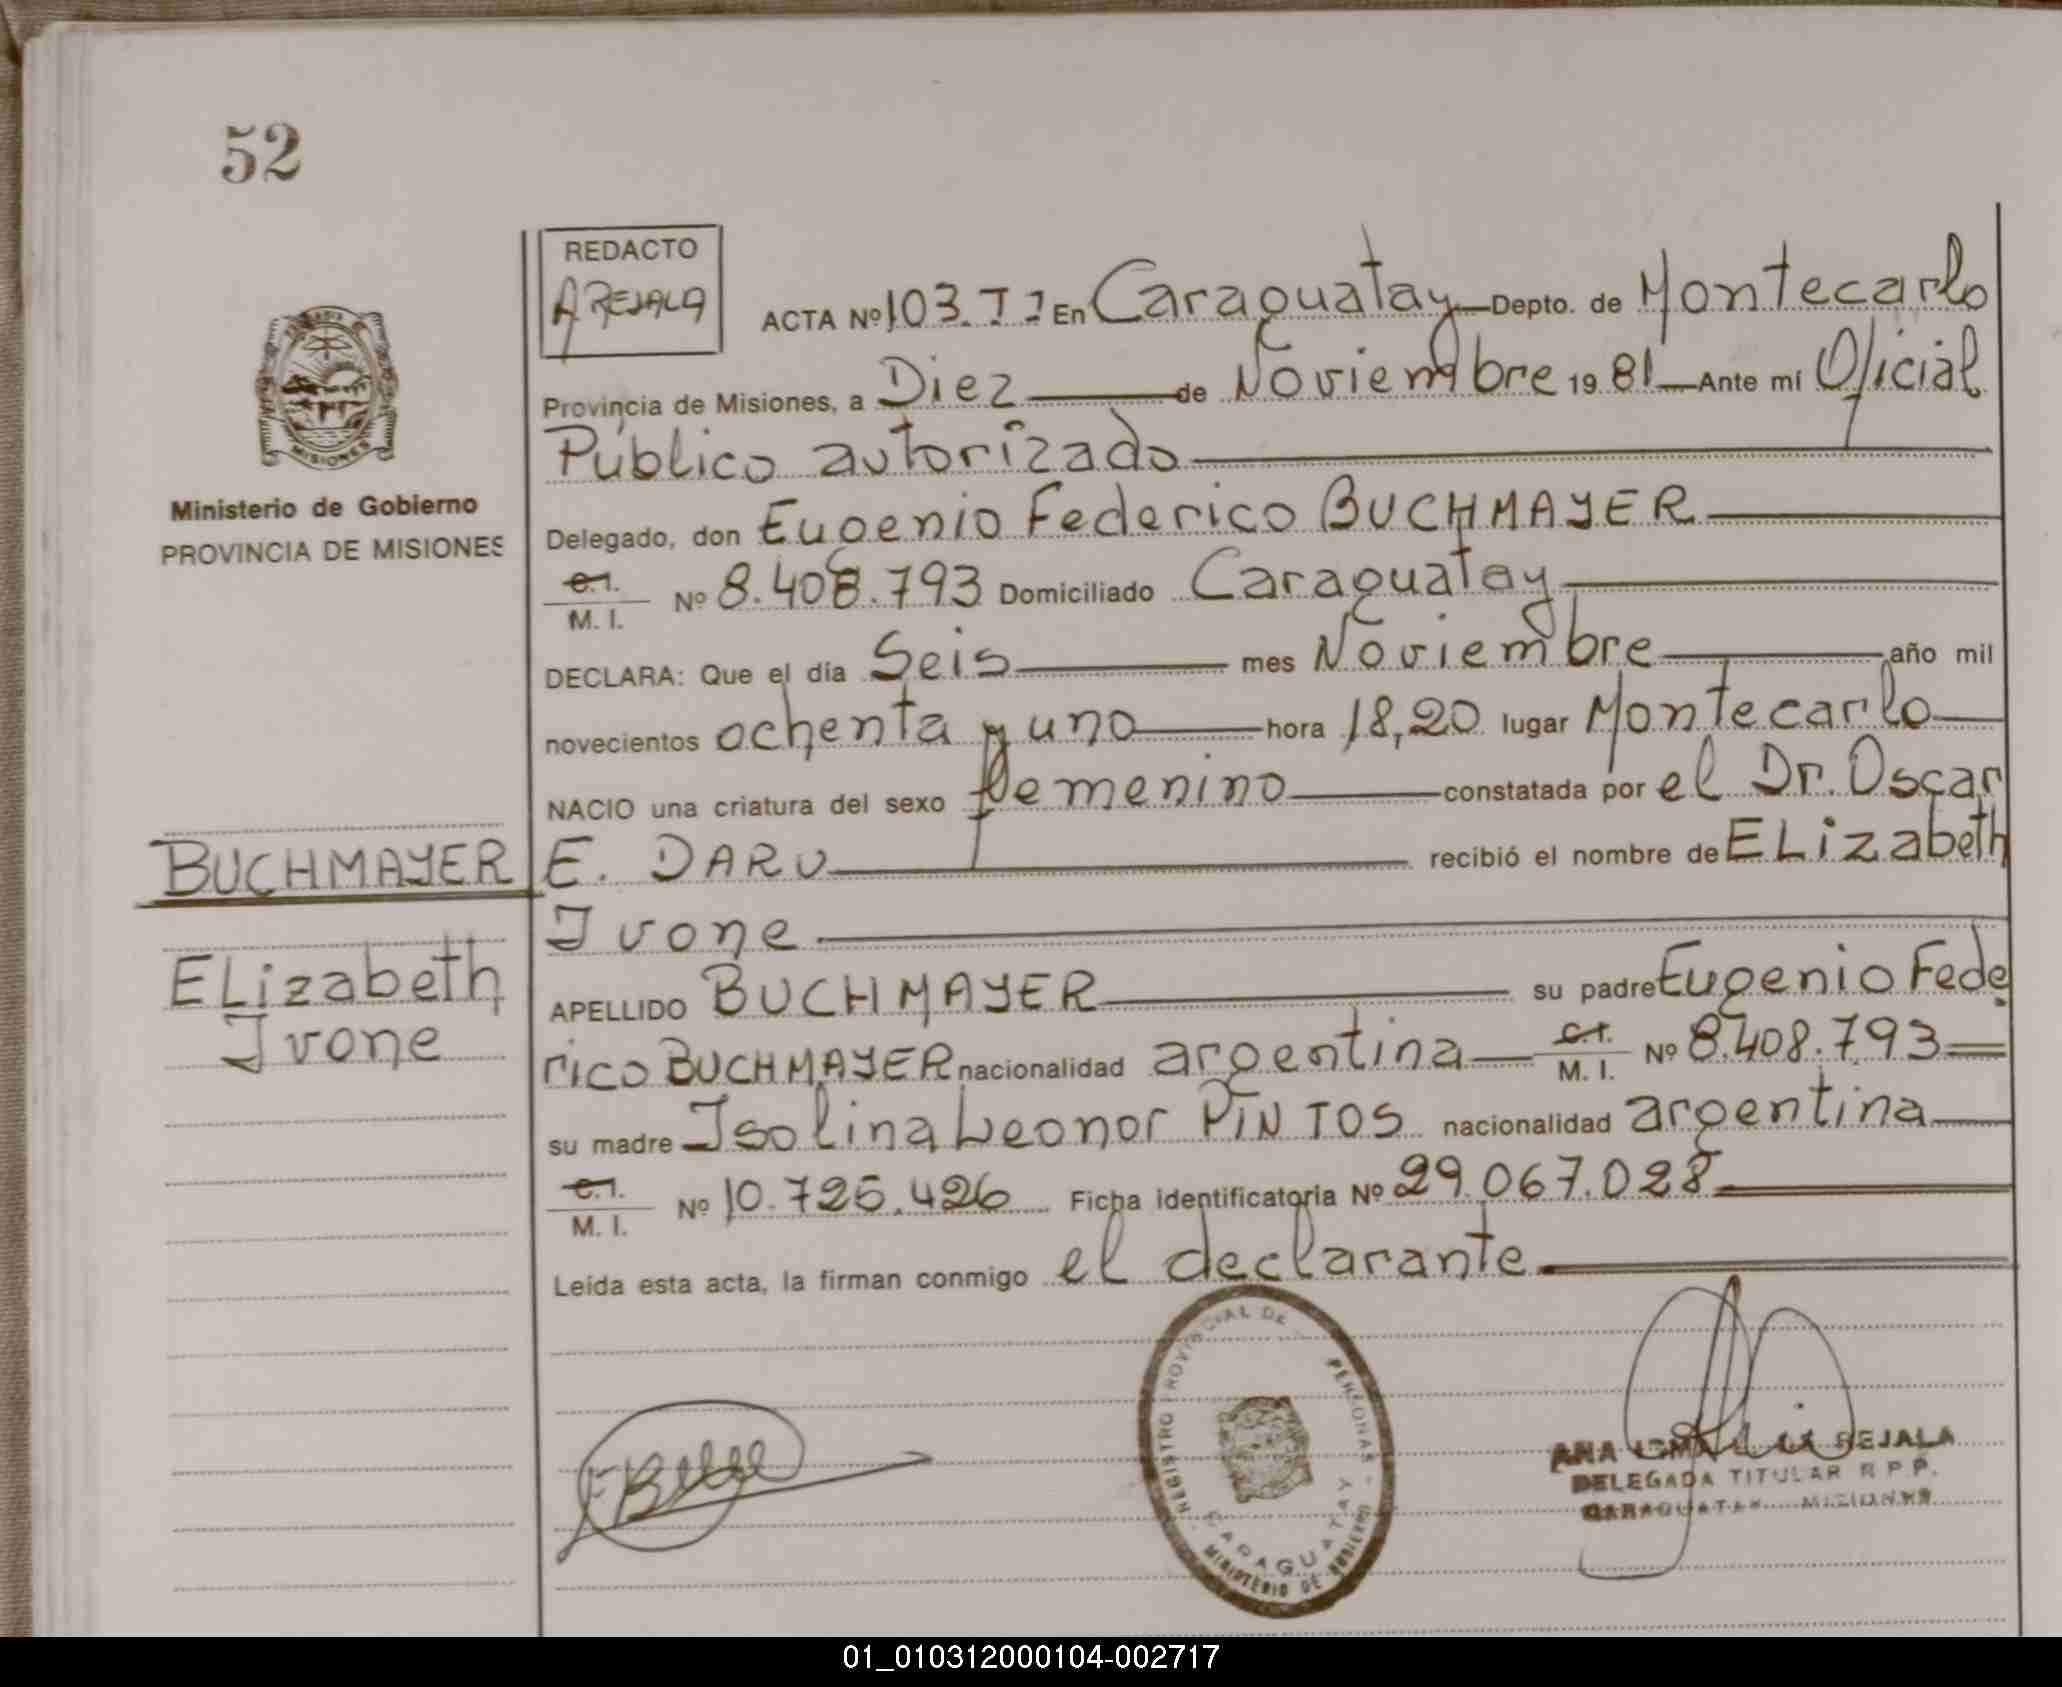 52
REDACTO
AREJALA
ACTA Nº 103. TI En Caraguatay Depto. de Montecarlo
Provincia de Misiones, a Diez de Noviembre 19 81 Ante mí Oficial
Público autorizado
Ministerio de Gobierno
PROVINCIA DE MISIONES
Delegado, don Eugenio Federico BUCHMAYER
C.I.
M. I. Nº 8.408.793 Domiciliado Caraguatay
DECLARA: Que el día Seis mes Noviembre año mil
novecientos ochenta y uno hora 18,20 lugar Montecarlo
NACIO una criatura del sexo femenino constatada por el Dr. Oscar
E. DARU recibió el nombre de ELizabeth
Ivone
BUCHMAYER
ELizabeth
Ivone
APELLIDO BUCHMAYER su padre Eugenio Fede
rico BUCHMAYER nacionalidad argentina C.I. M. I. Nº 8.408.793
su madre Isolina Leonor PiNTOS nacionalidad argentina
C.I.
M. I. Nº 10.725.426 Ficha identificatoria Nº 29.067.028
Leída esta acta, la firman conmigo el declarante
REGISTRO PROVINCIAL DE PERSONAS
CARAGUATAY
MINISTERIO DE GOBIERNO
ANA REJALA
DELEGADA TITULAR R.P.P.
CARAGUATAY MISIONES
MISIONES
01_010312000104-002717